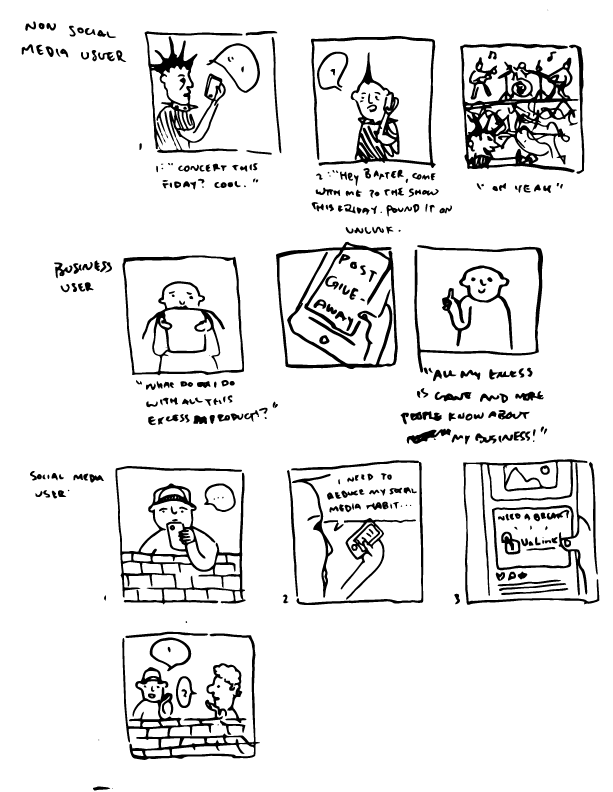 NON SOCIAL
MEDIA USUER
1
1: "CONCERT THIS
FIDAY? COOL."
2: "HEY BAXTER, COME
WITH ME TO THE SHOW
THIS FRIDAY. FOUND IT ON
UNLINK.
"OH YEAH"
BUSINESS
USER
POST
GIVE-
AWAY
"WHAT DO I DO
WITH ALL THIS
EXCESS PRODUCT?"
"ALL MY EXCESS
IS GONE AND MORE
PEOPLE KNOW ABOUT
MY BUSINESS!"
SOCIAL MEDIA
USER:
...
1
I NEED TO
REDUCE MY SOCIAL
MEDIA HABIT...
2
NEED A BREAK?
UnLink!
3
!
?